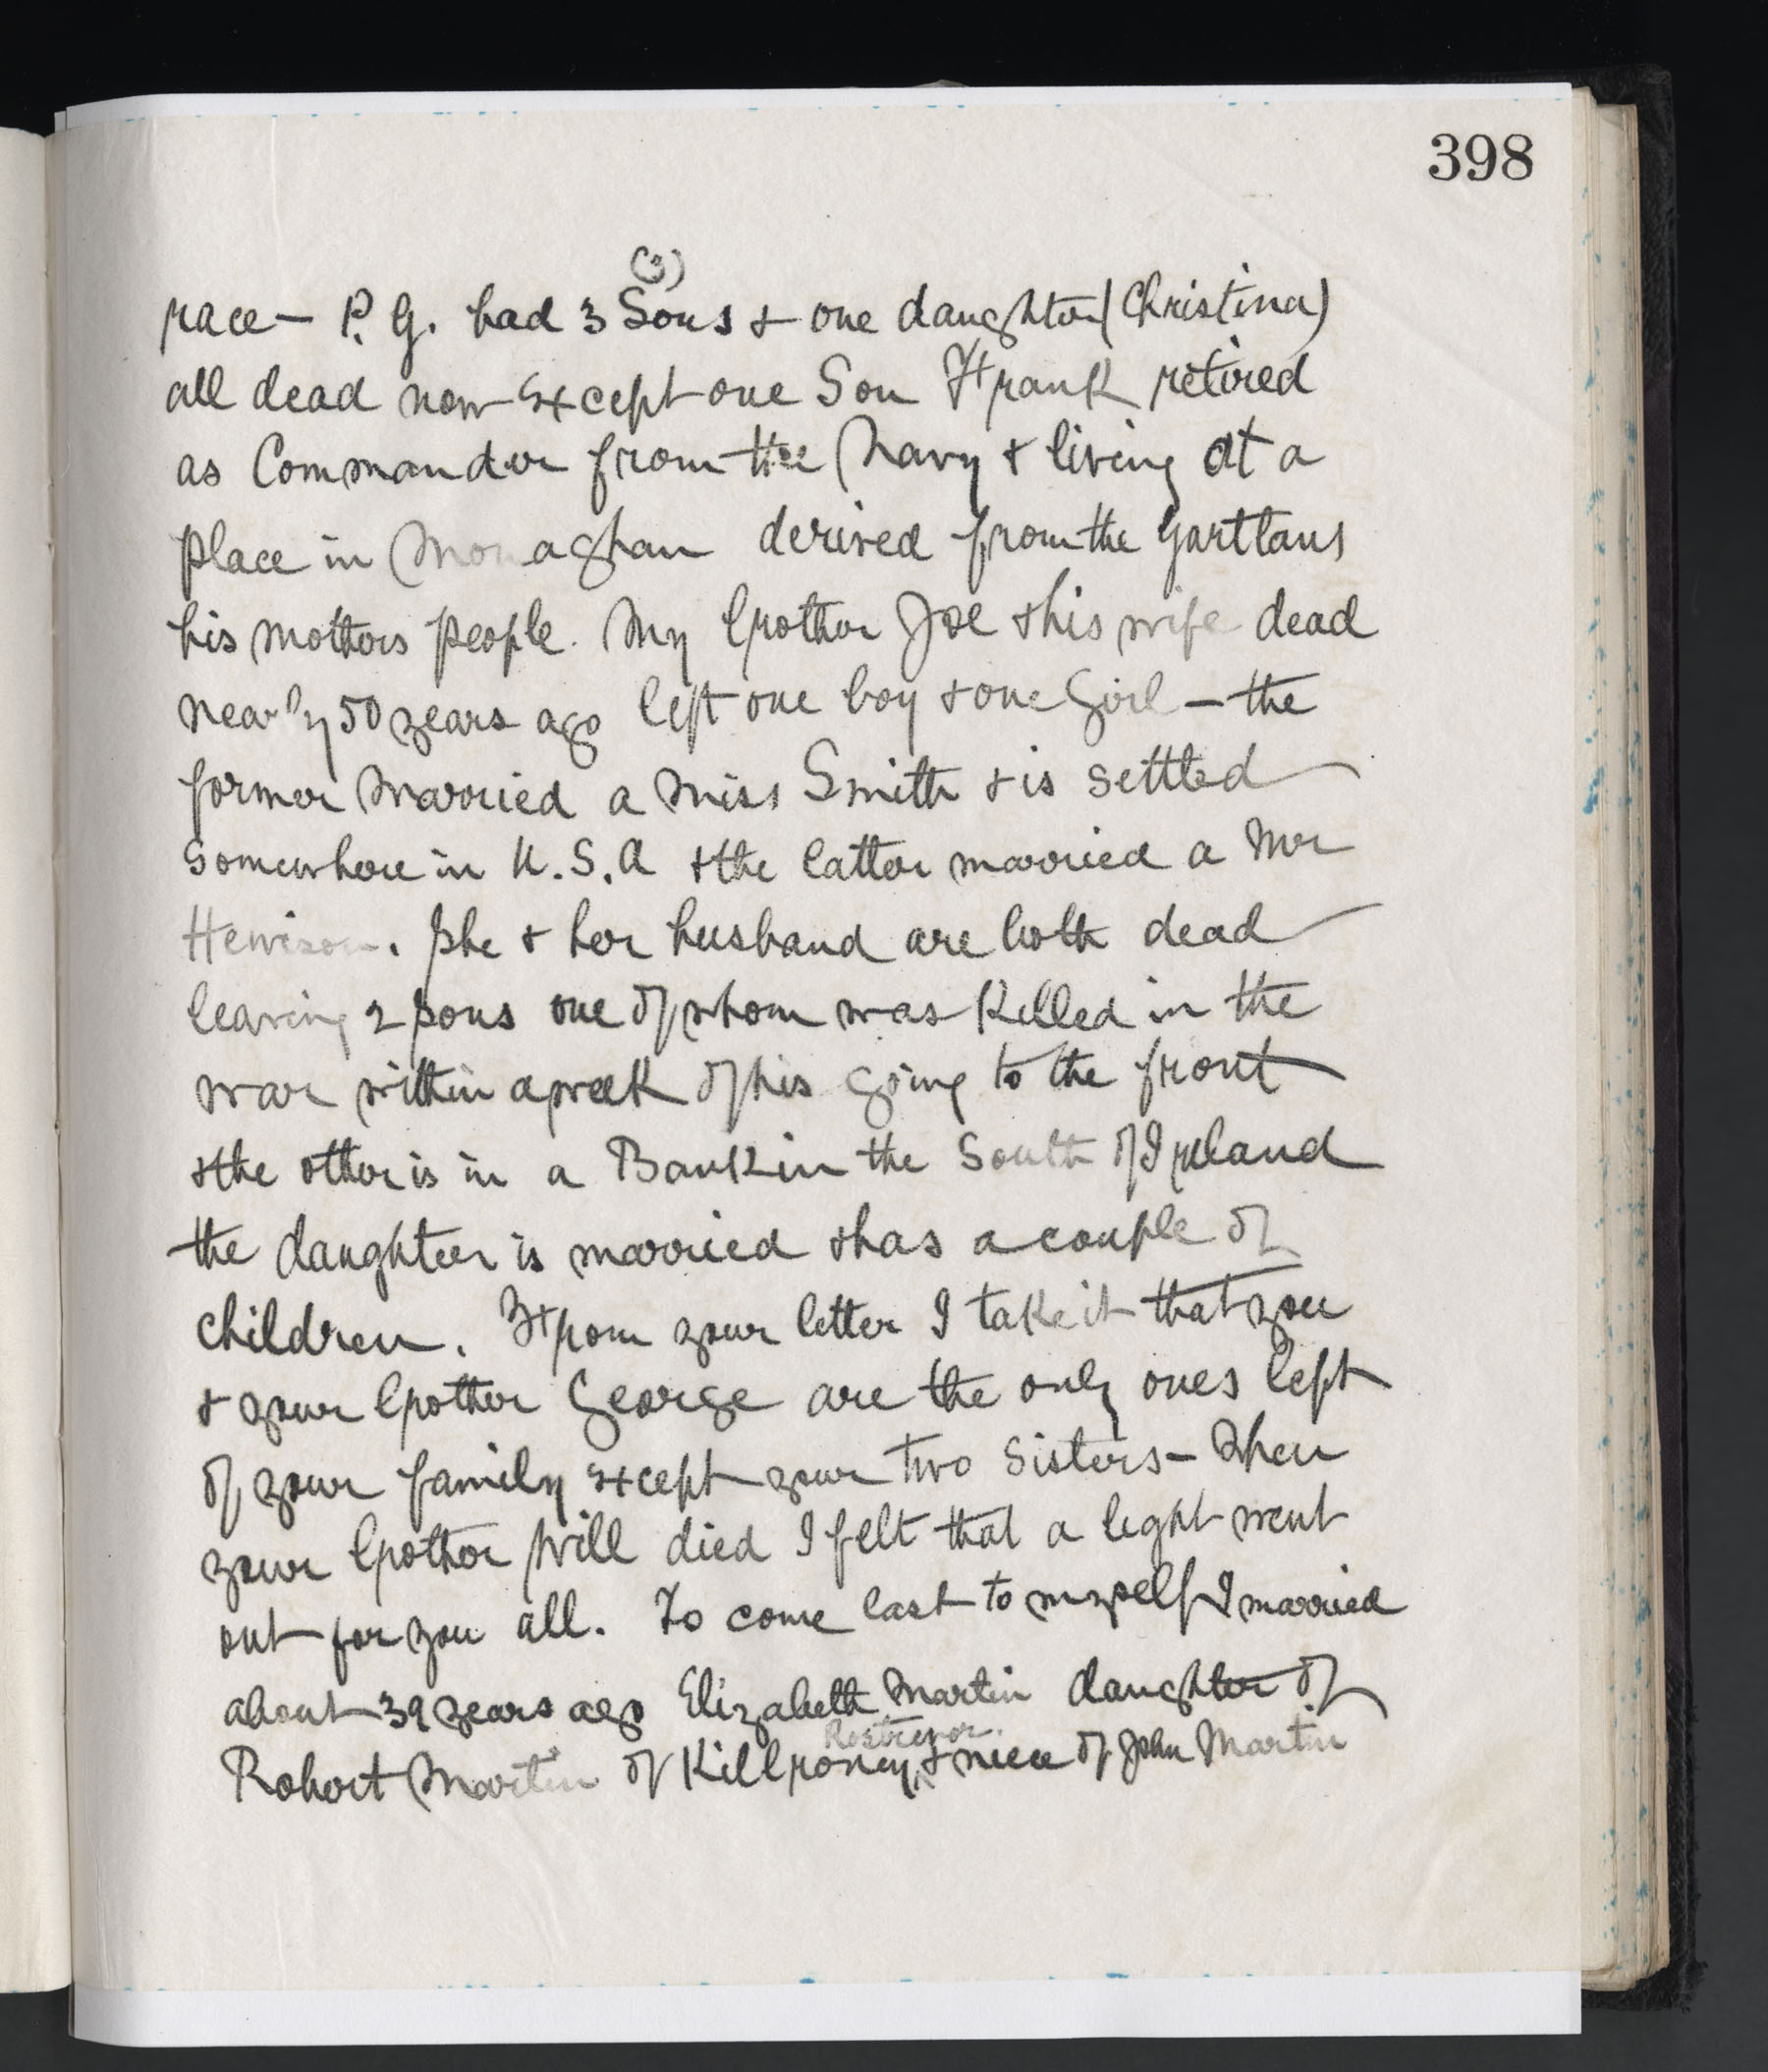 398
(3)
race - P. G. had 3 Sons & one daughter (Christina)
all dead now except one Son Frank retired
as Commander from the Navy & living at a
place in Monaghan derived from the Gartlans
his mothers people. My brother Joe & his wife dead
nearly 50 years ago left one boy & one Girl - the
former married a Miss Smith & is settled
somewhere in U.S.A & the latter married a Mr
Hewison. She & her husband are both dead
leaving 2 sons one of whom was killed in the
war within a week of his going to the front
& the other is in a Bank in the South of Ireland
the daughter is married & has a couple of
children. From your letter I take it that you
& your brother George are the only ones left
of your family except your two Sisters - When
your brother Will died I felt that a light went
out for you all. To come last to myself I married
about 39 years ago Elizabeth Martin daughter of
Rostrevor.
Robert Martin of Killroney, & niece of John Martin